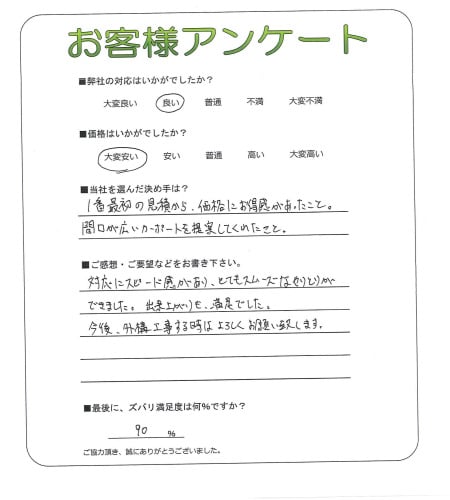 お客様アンケート
■弊社の対応はいかがでしたか？
大変良い 良い 普通 不満 大変不満
■価格はいかがでしたか？
大変安い 安い 普通 高い 大変高い
■当社を選んだ決め手は？
1番最初の見積から、価格にお得感があったこと。
間口が広いカーポートを提案してくれたこと。
■ご感想・ご要望などをお書き下さい。
対応にスピード感があり、とてもスムーズなやりとりが
できました。出来上がりも、満足でした。
今後、外構工事する時はよろしくお願い致します。
■最後に、ズバリ満足度は何%ですか？
90 %
ご協力頂き、誠にありがとうございました。